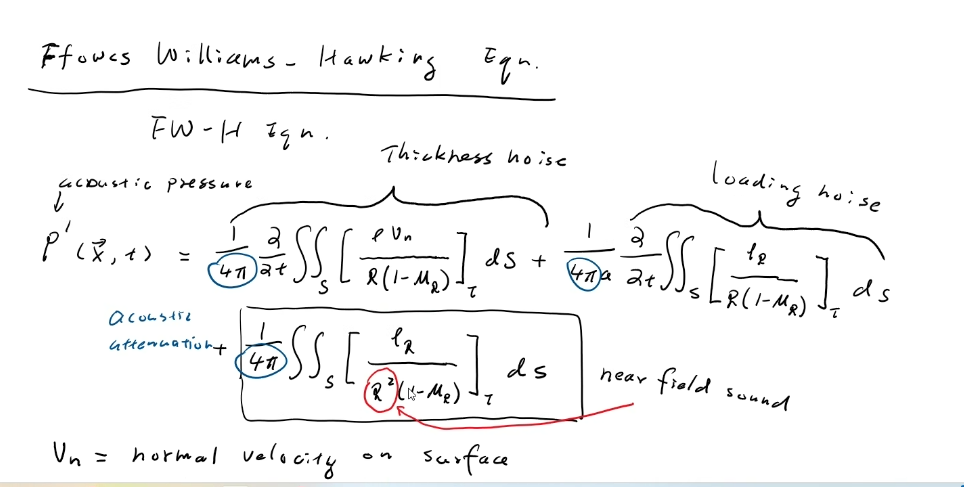 Ffowcs Williams - Hawking Eqn.
FW-H Eqn.
Thickness noise
loading noise
acoustic pressure
P'(x⃗,t) = 1/4π ∂/∂t ∬_S [ρVn / R(1-M_R)]_τ dS + 1/4πa ∂/∂t ∬_S [l_R / R(1-M_R)]_τ ds
acoustic
attenuation
+ 1/4π ∬_S [l_R / R²(1-M_R)]_τ ds
near field sound
Vn = normal velocity on surface